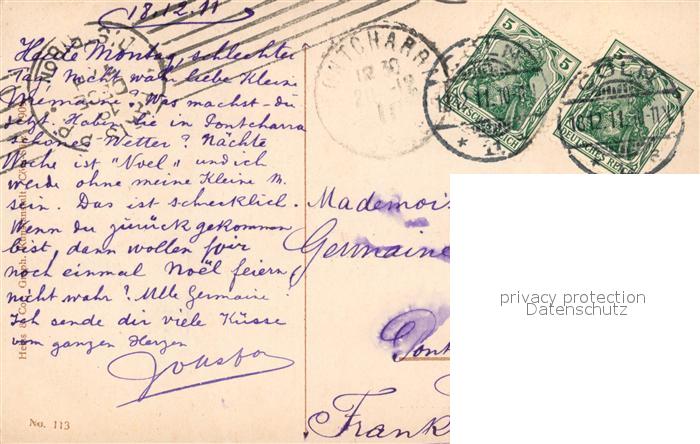 18.12.11
Heute Montag, schlechter
Tag. Nicht wahr liebe Kleine
Germaine? Was machst du
jetzt. Haben Sie in Pontcharra
schönes Wetter? Nächte
Woche ist "Noel" und ich
werde ohne meine Kleine M.
sein. Das ist schrecklich.
Wenn du zurück gekommen
bist, dann wollen wir
noch einmal Noël feiern,
nicht wahr? Mlle Germaine!
Ich sende dir viele Küsse
vom ganzen Herzen
No. 113
PONTCHARRA
5 5
DEUTSCHES REICH
5 5
DEUTSCHES REICH
CÖLN
Mademois
Germaine
Pont
Frank
privacy protection
Datenschutz